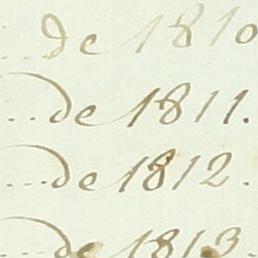 de 1810
...de 1811.
...de 1812.
...de 1813.